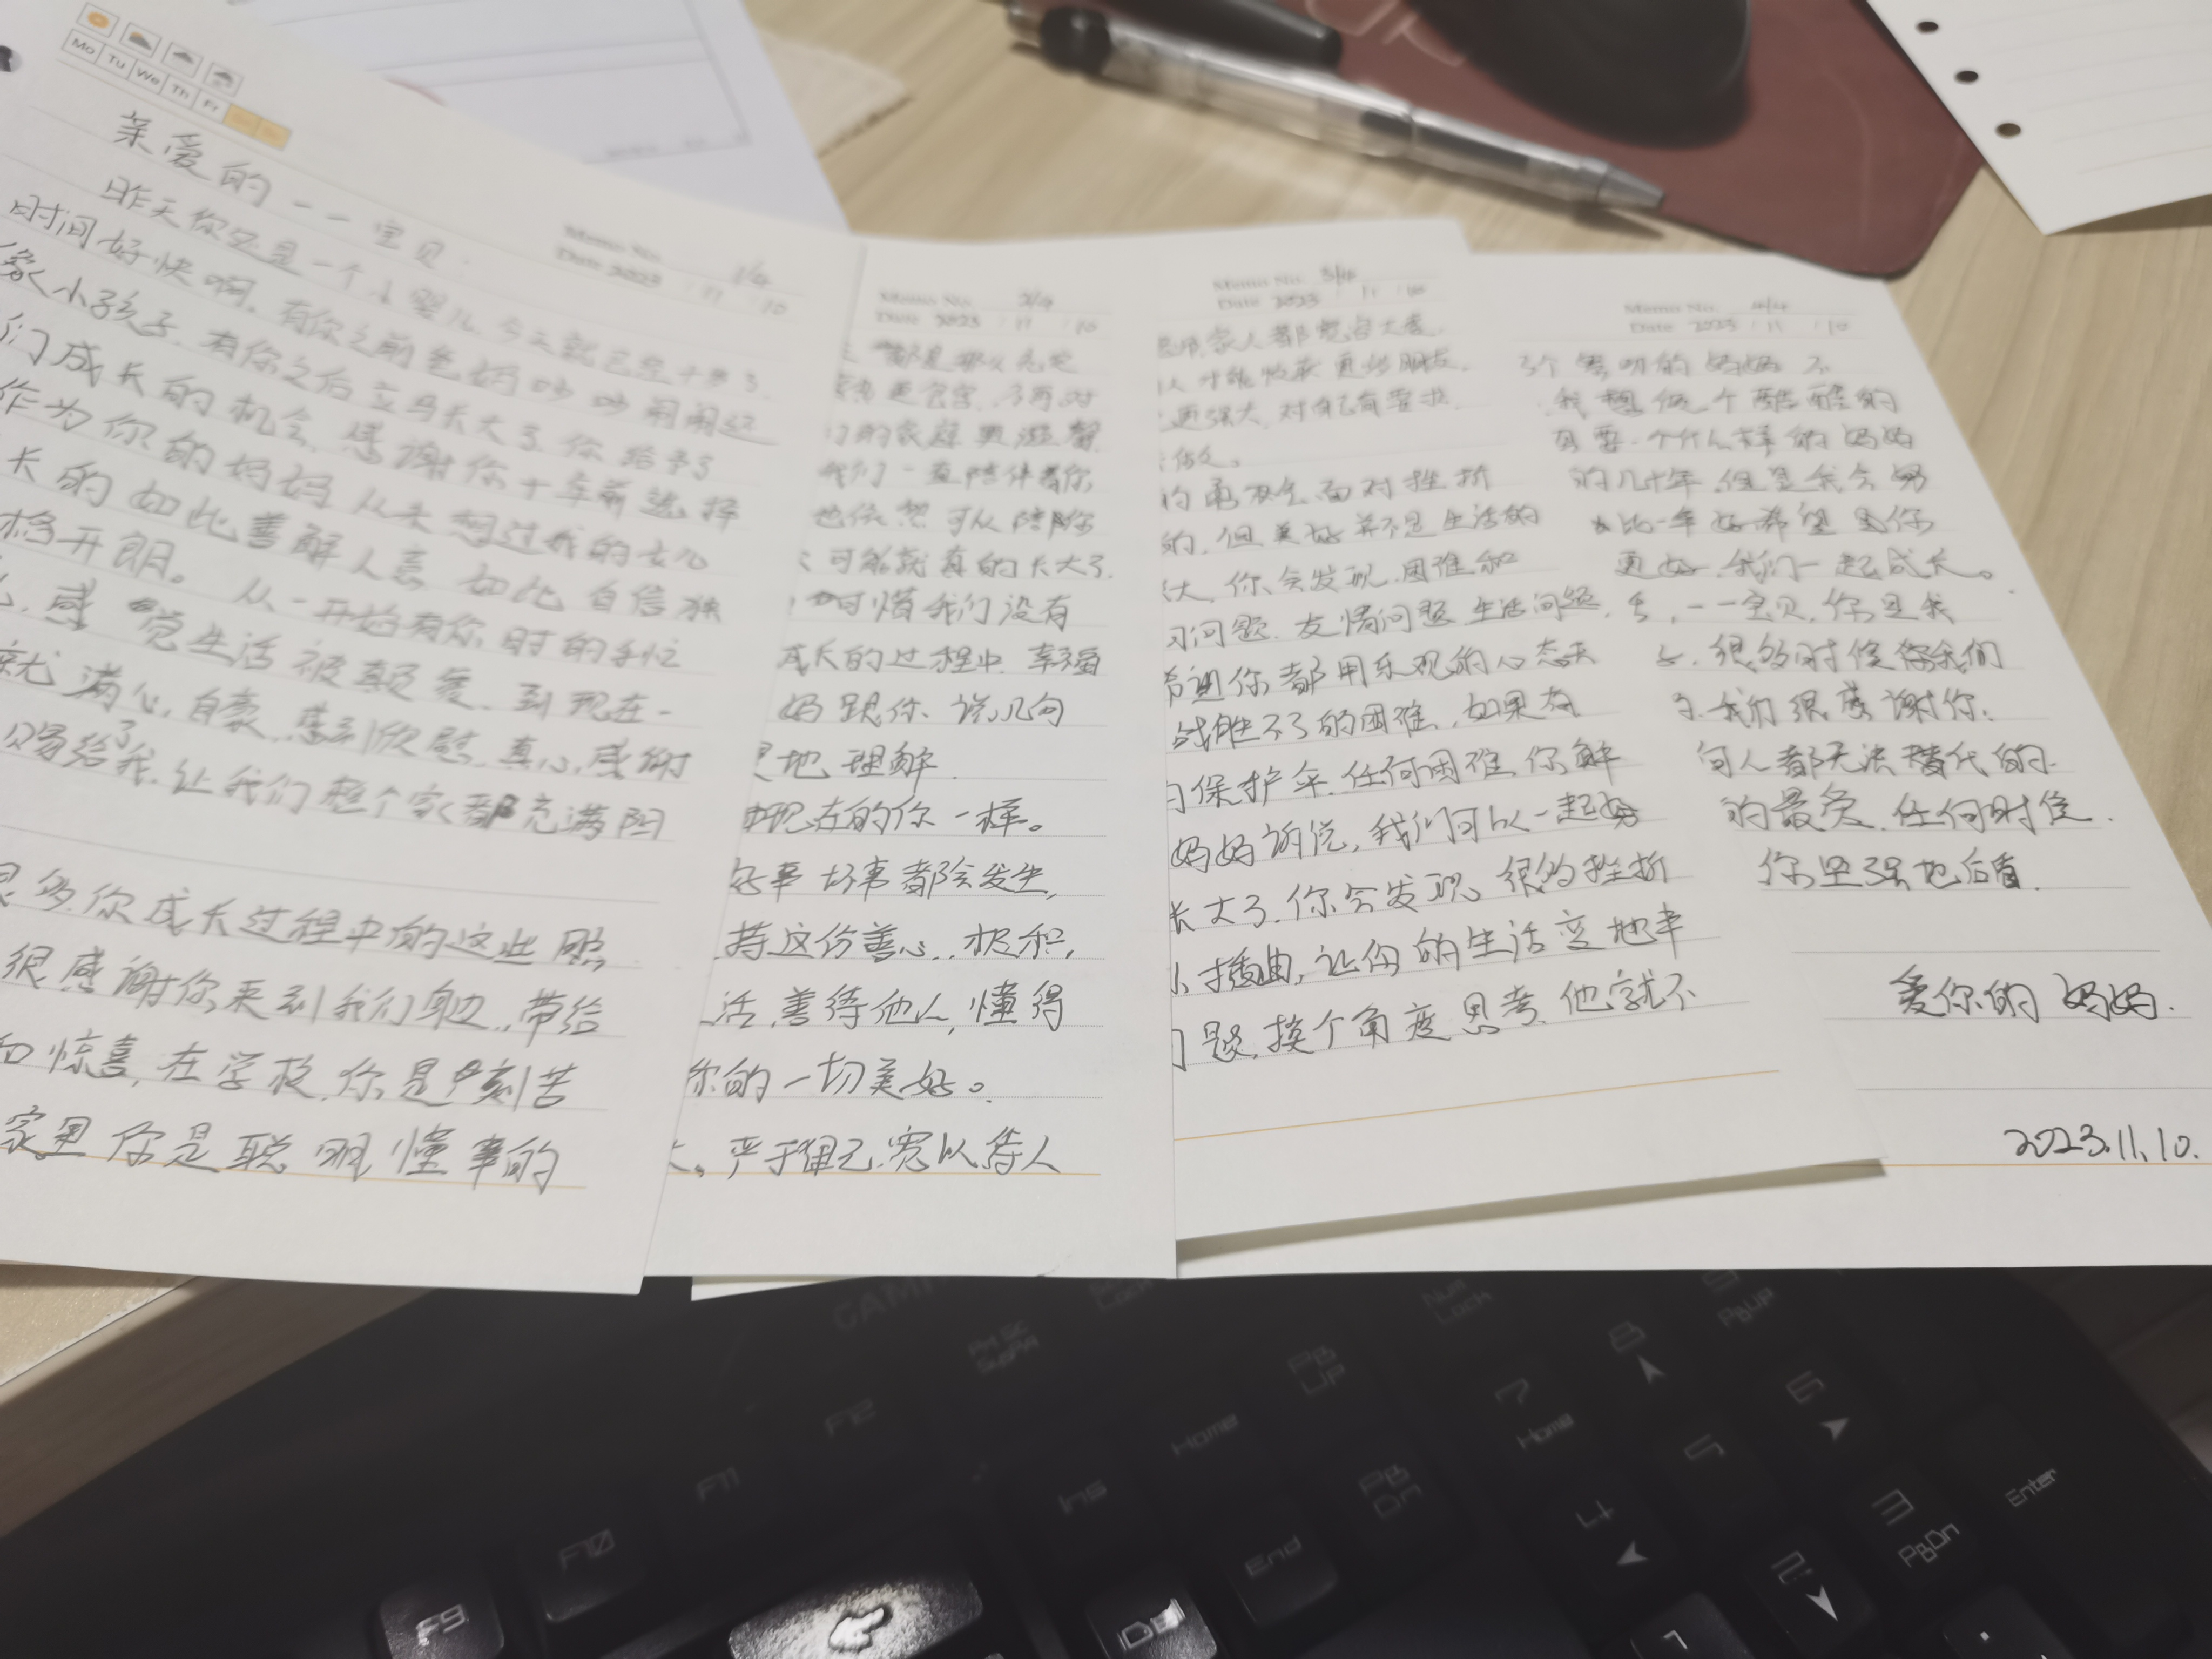 Mo Tu We Th Fr
Memo No. 1/4
Date 2023 / 11 / 10
亲爱的一一宝贝.
昨天你还是一个小婴儿,今天就已经十岁了.
时间好快啊,有你之前爸妈吵吵闹闹还
像小孩子,有你之后立马长大了,你给予了
们成长的机会,感谢你十年前选择
作为你的妈妈从未想过我的女儿
长的如此善解人意 如此自信独
格开朗。从一开始有你时的手忙
感觉生活被颠覆,到现在一
就满心自豪,感到欣慰,真心感谢
赐给了我,让我们整个家都充满阳
很多你成长过程中的这些照
很感谢你来到我们身边,带给
和惊喜,在学校,你是刻苦
家里你是聪明懂事的
Memo No. 2/4
Date 2023 / 11 / 10
们的家庭更温馨
我们一直陪伴着你
也依然可以陪你
可能就真的长大了.
可惜我们没有
成长的过程中,幸福
妈跟你说几句
地理解.
现在的你一样。
好事坏事都会发生,
持这份善心,积极,
活,善待他人,懂得
你的一切美好。
严于律己,宽以待人
Memo No. 3/4
Date 2023 / 11 / 10
人才能收获更多朋友.
更强大,对自己有要求.
的勇敢去面对挫折
的,但美好并不是生活的
大,你会发现,困难和
习问题,友情问题,生活问题,
希望你都用乐观的心态去
战胜不了的困难,如果有
的保护伞,任何困难,你解
妈妈诉说,我们可以一起努
长大了,你会发现,很多挫折
小插曲,让你的生活变地丰
问题,换个角度思考,他就不
Memo No. 4/4
Date 2023 / 11 / 10
个唠叨的妈妈 不
我想做个酷酷的
需要一个什么样的妈妈
的几十年,但是我会努
比一年好,希望
更好,我们一起成长。
一一宝贝,你是我
很多时候,你我们
了,我们很感谢你.
何人都无法替代的.
的最爱,任何时候.
你坚强地后盾.
爱你的妈妈.
2023.11.10.
PrtSc
SysRq
F12
F11
F10
F9
Home
Ins
End
Del
Pg
Up
Pg
Dn
Num
Lock
7
Home
8
9
PgUp
4
5
6
2
3
PgDn
Enter